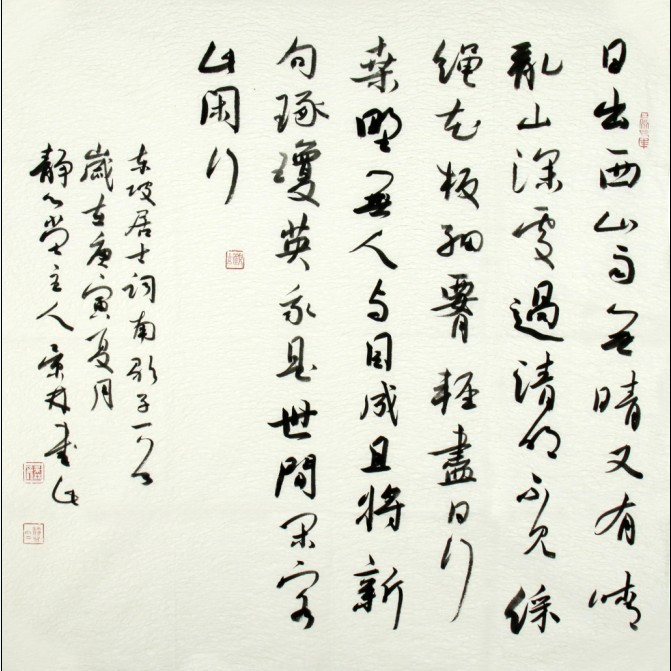 日出西山雨無晴又有晴
亂山深處過清明不見綵
繩花板細腰輕盡日行
桒野無人與目成且將新
句琢瓊英我是世間閑客
此閑行
東坡居士詞南歌子一首
歲在庚寅夏月
靜心堂主人書